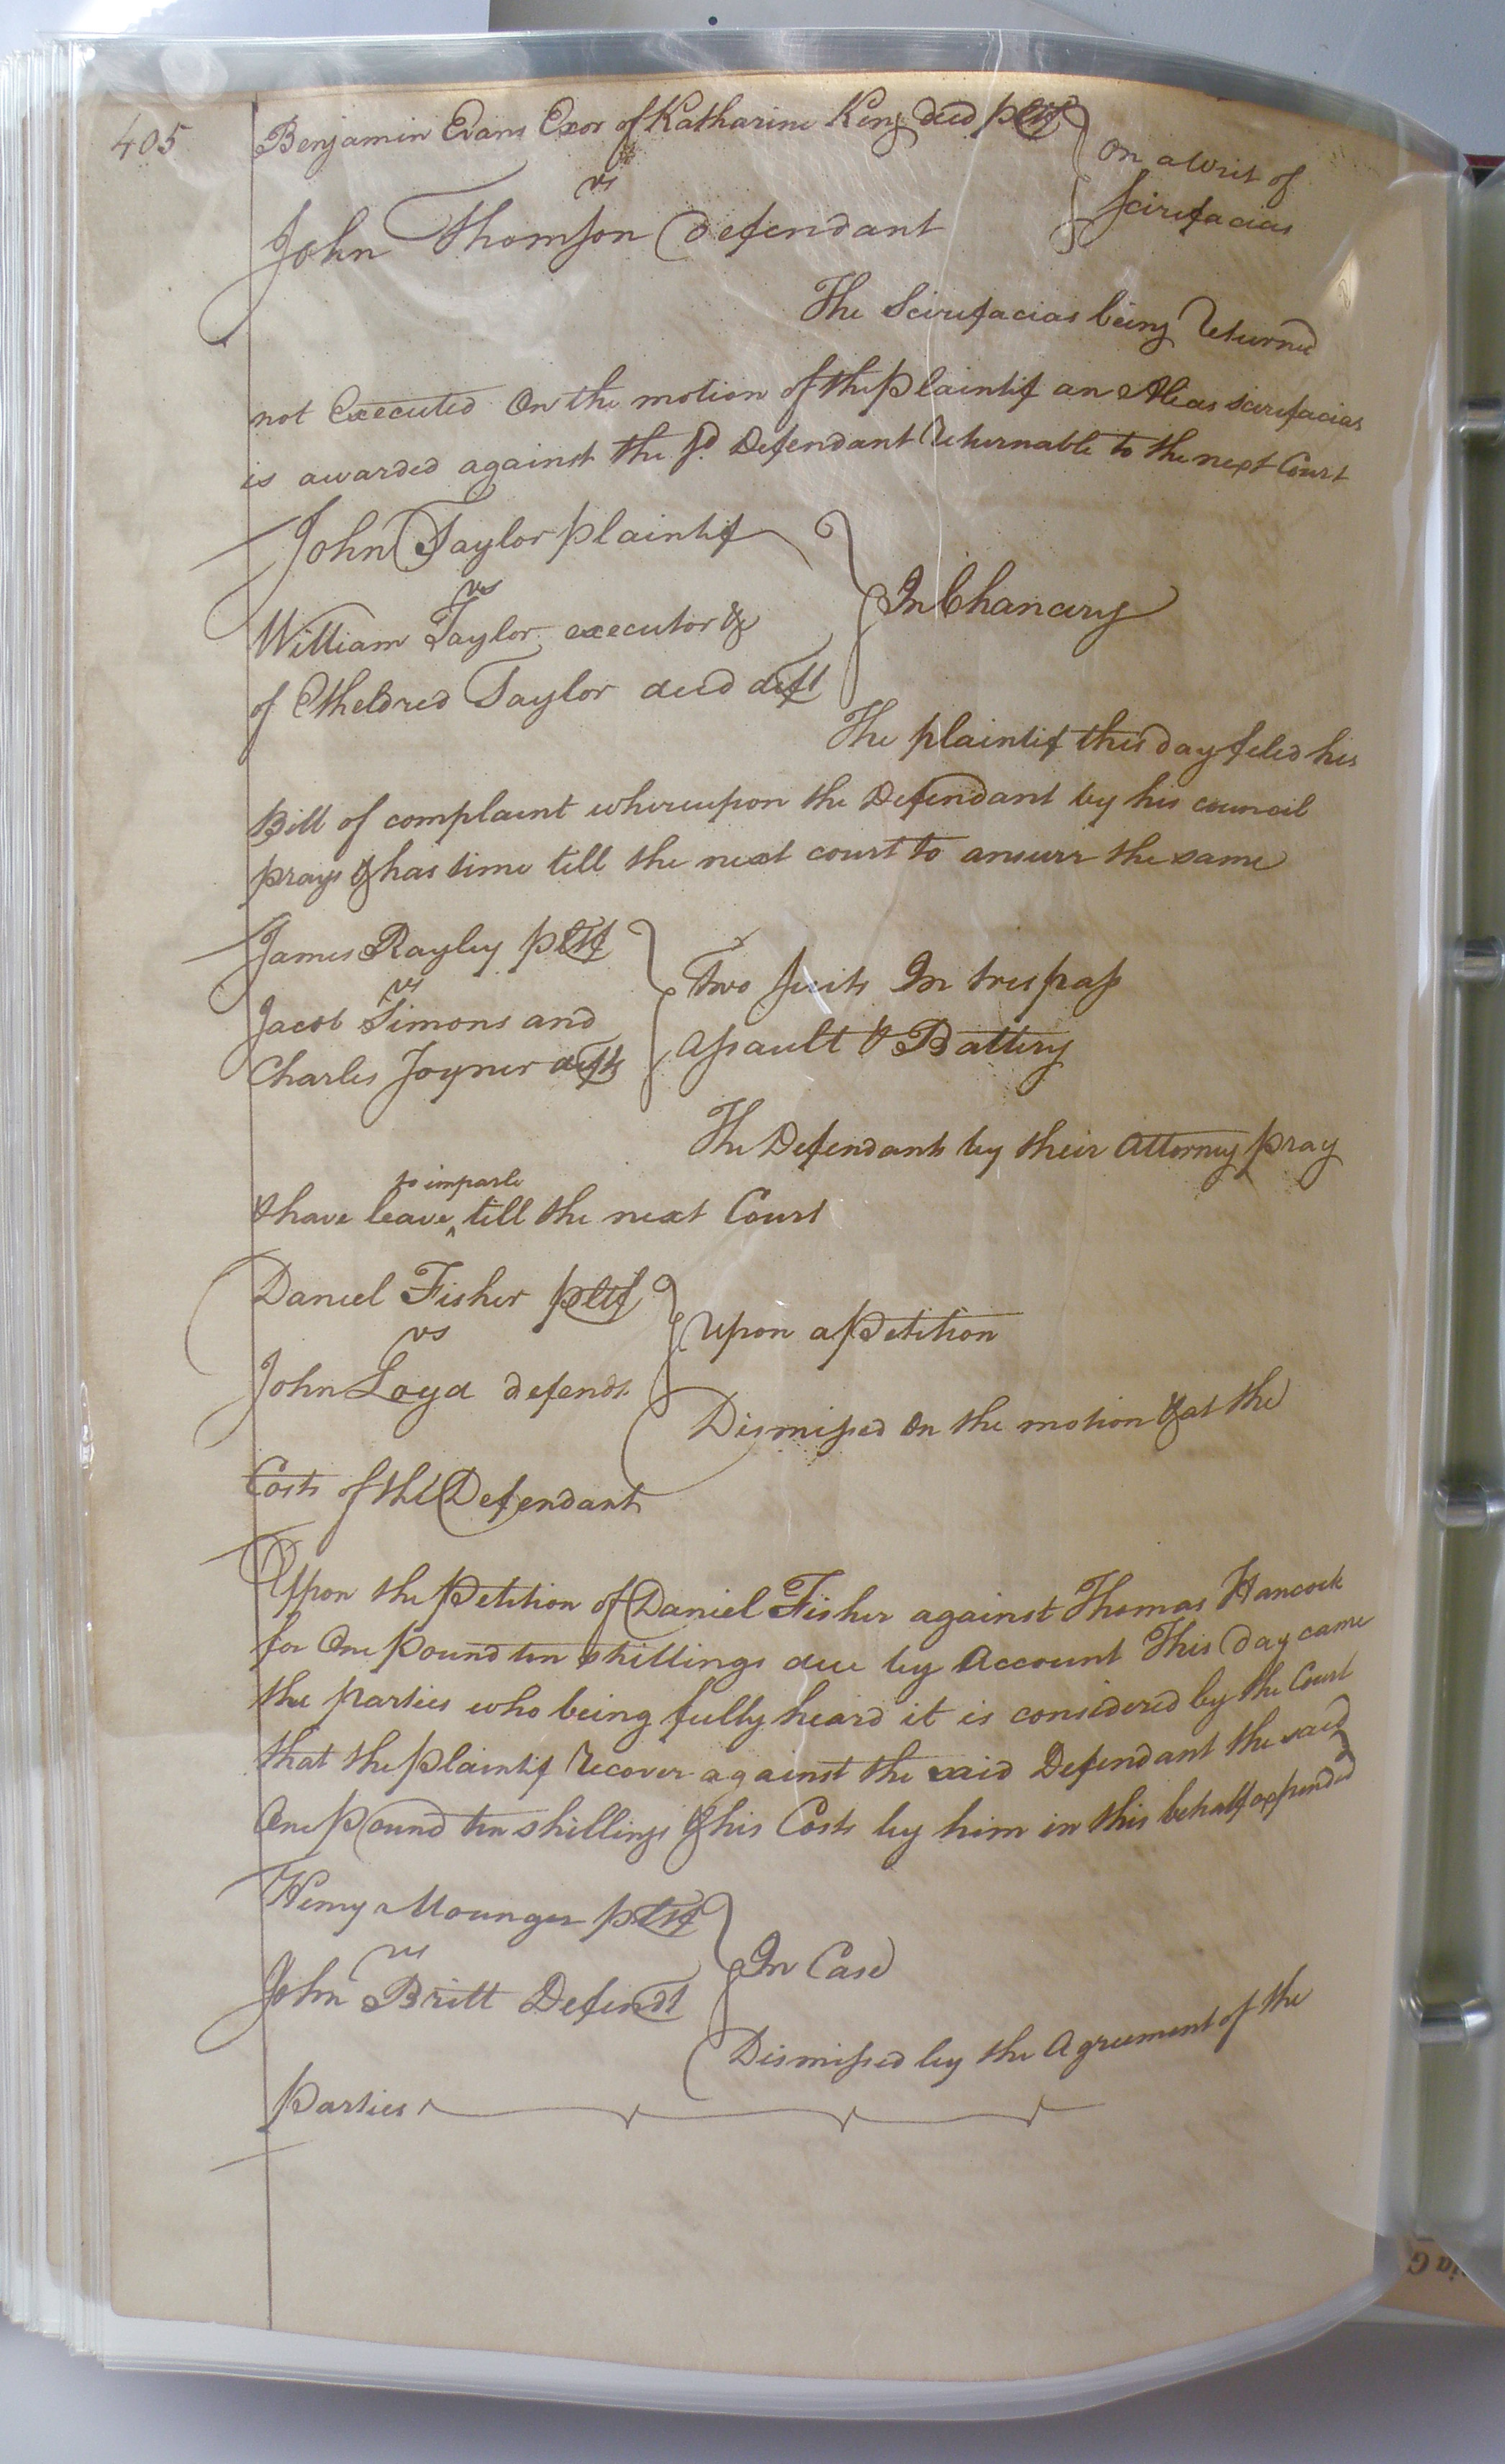 405
Benjamin Evans Exor of Katharine King decd pltf
vs
On a Writ of
Scirefacias
John Thomson Defendant
The Scirefacias being Returned
not Executed On the motion of the plaintif an Alias scirefacias
is awarded against the sd. Defendant Returnable to the next Court
John Taylor plaintif
vs
In Chancery
William Taylor executor &
of Etheldred Taylor decd deft
The plaintif this day filed his
Bill of complaint whereupon the Defendant by his council
prays & has time till the next court to answer the same
James Rayley pltf
vs
Two suits In trespass
Jacob Simons and
Assault & Battery
Charles Joyner defts
The Defendants by their Attorney pray
to imparle
& have leave ^ till the next Court
Daniel Fisher pltf
vs
Upon a Petition
John Loyd defendt
Dismissed On the motion & at the
Costs of the Defendant
Upon the Petition of Daniel Fisher against Thomas Hancock
for One Pound ten shillings due by Account This Day came
the Parties who being fully heard it is considered by the Court
that the plaintif Recover against the said Defendant the said
One Pound ten shillings & his Costs by him in this behalf expended
Henry Mounger pltf
vs
In Case
John Britt Defendt
Dismissed by the Agreement of the
Parties